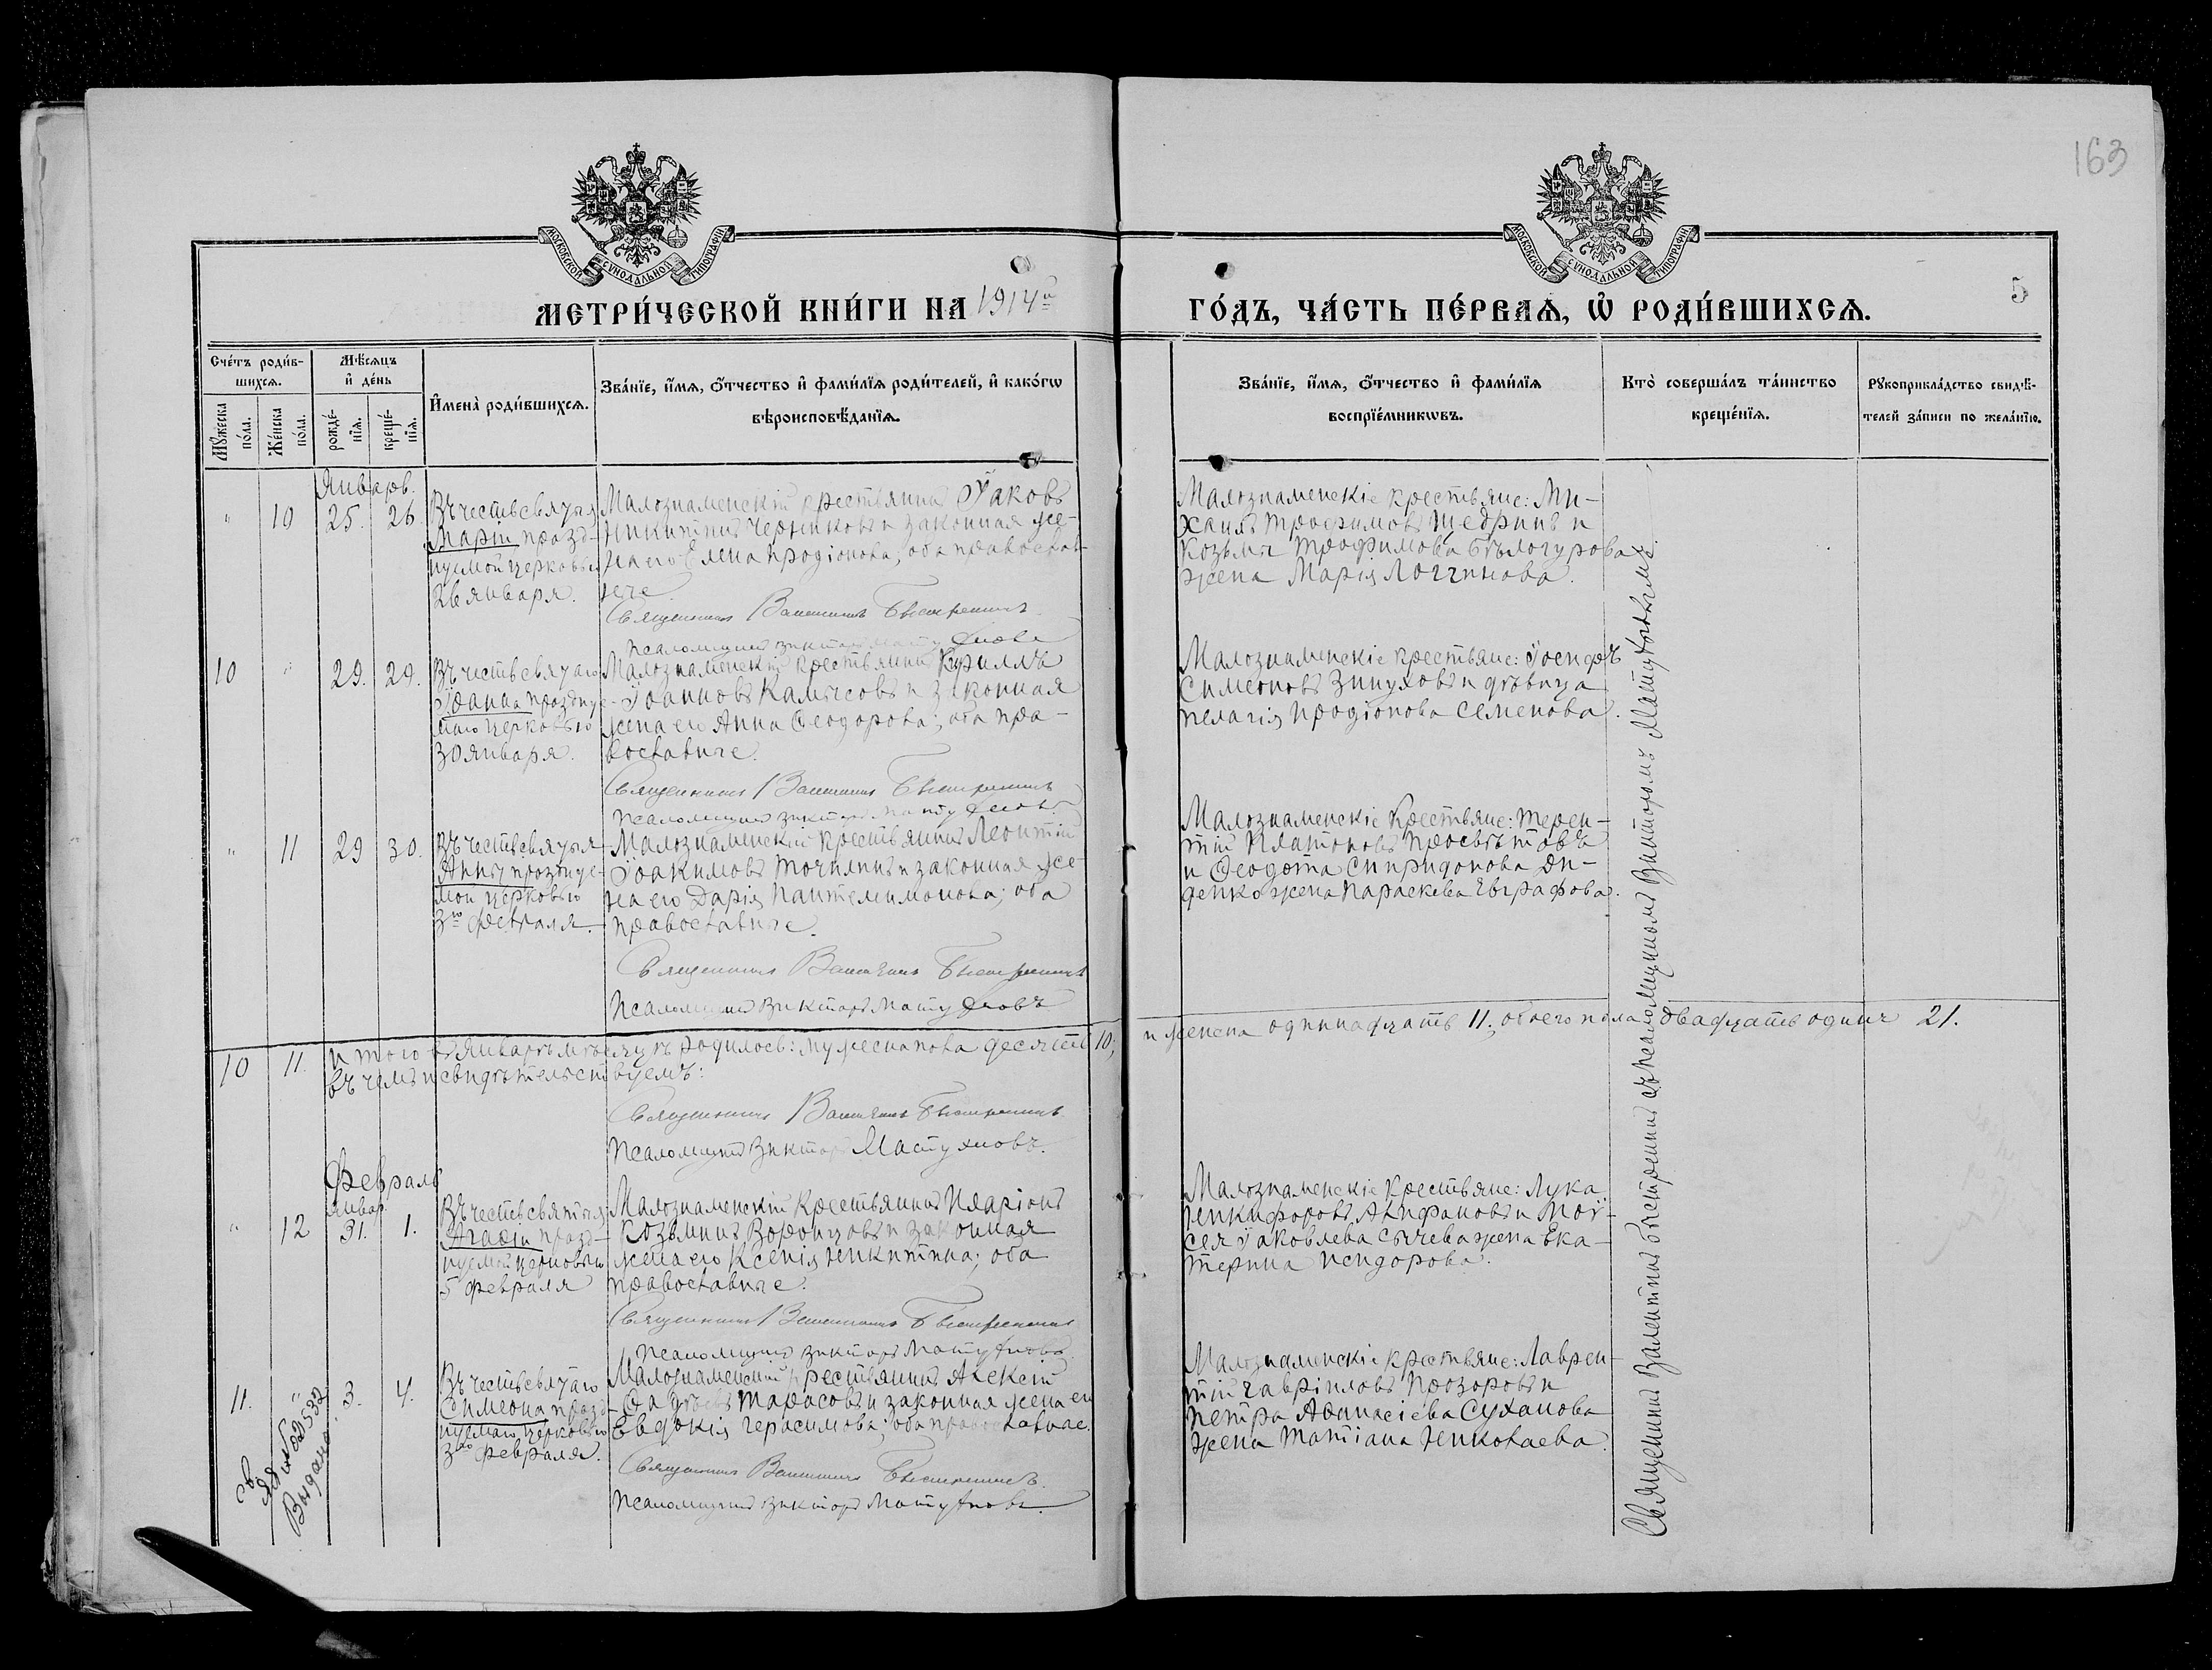 163
МОСКОВСКОЙ СѴНОДАЛЬНОЙ ТИПОГРАФІИ
МОСКОВСКОЙ СѴНОДАЛЬНОЙ ТИПОГРАФІИ
5
МЕТРИ́ЧЕСКОЙ КНИ́ГИ НА 1914й
ГО́ДЪ, ЧА́СТЬ ПЕ́РВАѦ, Ѡ҆ РОДИ́ВШИХСѦ.
Сче́тъ роди́в-
шихсѧ.
Мꙋ́жеска по́ла.
Же́нска по́ла.
Мѣ́сѧцъ
и҆ де́нь
рожде́-
нїѧ.
креще́-
нїѧ.
И҆мена̀ роди́вшихсѧ.
Зва́нїе, и҆́мѧ, ѻ҆́тчество и҆ фами́лїѧ роди́телей, и҆ како́гѡ
вѣроисповѣ́данїѧ.
Зва́нїе, и҆́мѧ, ѻ҆́тчество и҆ фами́лїѧ
воспрїе́мникѡвъ.
Кто̀ соверша́лъ та́инство
креще́нїѧ.
Рꙋкоприкла́дство свидѣ́-
телей за́писи по жела́нїю.
Январь.
" 10 25. 26.
Въ честь святыя
Маріи празд-
нуемой церковью
26 января.
Малознаменскій крестьянинъ Іаковъ
Никитинъ Черниковъ и законная же-
на его Елена Иродіонова; оба православ-
ные.
Священникъ Валентинъ Быстренинъ
Псаломщикъ Викторъ Матухновъ
Малознаменскіе крестьяне: Ми-
хаилъ Трофимовъ Щедринъ и
Козьмы Трофимова Бѣлогурова
жена Марія Логгинова.
10 " 29. 29.
Въ честь святаго
Іоанна празднуе-
маго церковью
30 января.
Малознаменскій крестьянинъ Кириллъ
Іоанновъ Камысовъ и законная
жена его Анна Ѳеодорова; оба пра-
вославные.
Священникъ Валентинъ Быстренинъ
Псаломщикъ Викторъ Матухновъ
Малознаменскіе крестьяне: Іосифъ
Симеоновъ Зинуховъ и дѣвица
Пелагія Иродіонова Семенова.
" 11 29 30.
Въ честь святыя
Анны празднуе-
мой церковью
3го февраля.
Малознаменскій крестьянинъ Леонтій
Іоакимовъ Точилинъ и законная же-
на его Дарія Пантелеимонова; оба
православные.
Священникъ Валентинъ Быстренинъ
Псаломщикъ Викторъ Матухновъ
Малознаменскіе крестьяне: Терен-
тій Платоновъ Просвѣтовъ
и Ѳеодота Спиридонова Ди-
денко жена Параскева Евграфова.
10 11. Итого въ Январѣ мѣсяцѣ родилось: мужеска пола десять 10; и женска одиннадцать 11; обоего пола двадцать одинъ 21.
въ чемъ и свидѣтельствуемъ:
Священникъ Валентинъ Быстренинъ
Псаломщикъ Викторъ Матухновъ.
Февраль
Январ.
" 12 31. 1.
Въ честь святыя
Агаѳіи празд-
нуемой церковью
5 февраля
Малознаменскій крестьянинъ Иларіонъ
Козьминъ Воронцовъ и законная
жена его Ксенія Никитина; оба
православные.
Священникъ Валентинъ Быстренинъ
Псаломщикъ Викторъ Матухновъ.
Малознаменскіе крестьяне: Лука
Никифоровъ Агифановъ и Мои-
сея Іаковлева Сычева жена Ека-
терина Исидорова.
11. " 3. 4.
Въ честь святаго
Симеона празд-
нуемаго церковью
3го февраля.
Малознаменскій крестьянинъ Алексій
Ѳаддѣевъ Тарасовъ и законная жена его
Евдокія Герасимова; оба православные.
Священникъ Валентинъ Быстренинъ.
Псаломщикъ Викторъ Матухновъ.
Малознаменскіе крестьяне: Лаврен-
тій Гавріиловъ Прозоровъ и
Петра Аѳанасіева Суханова
жена Татіана Николаева.
Выдано
Священникъ Валентинъ Быстренинъ съ псаломщикомъ Викторомъ Матухновымъ.